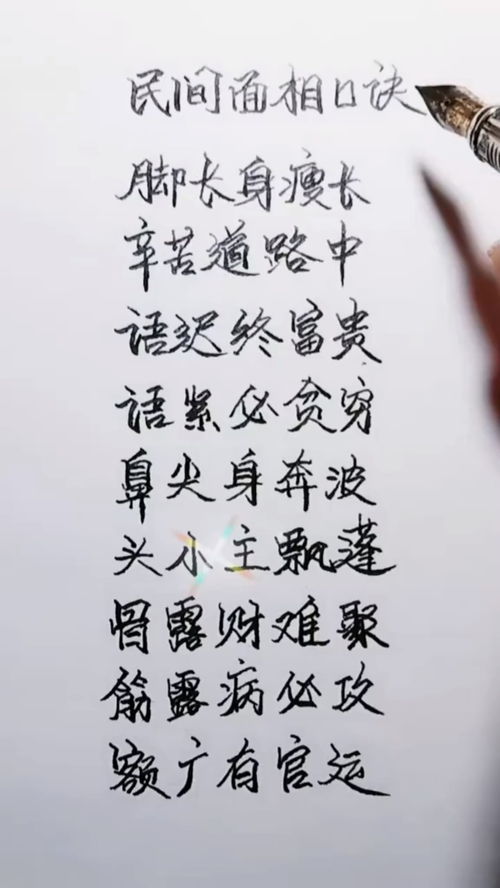 民间面相口诀
脚长身瘦长
辛苦道路中
语迟终富贵
语紧必贫穷
鼻尖身奔波
头小主飘蓬
骨露财难聚
筋露病必攻
额广有官运